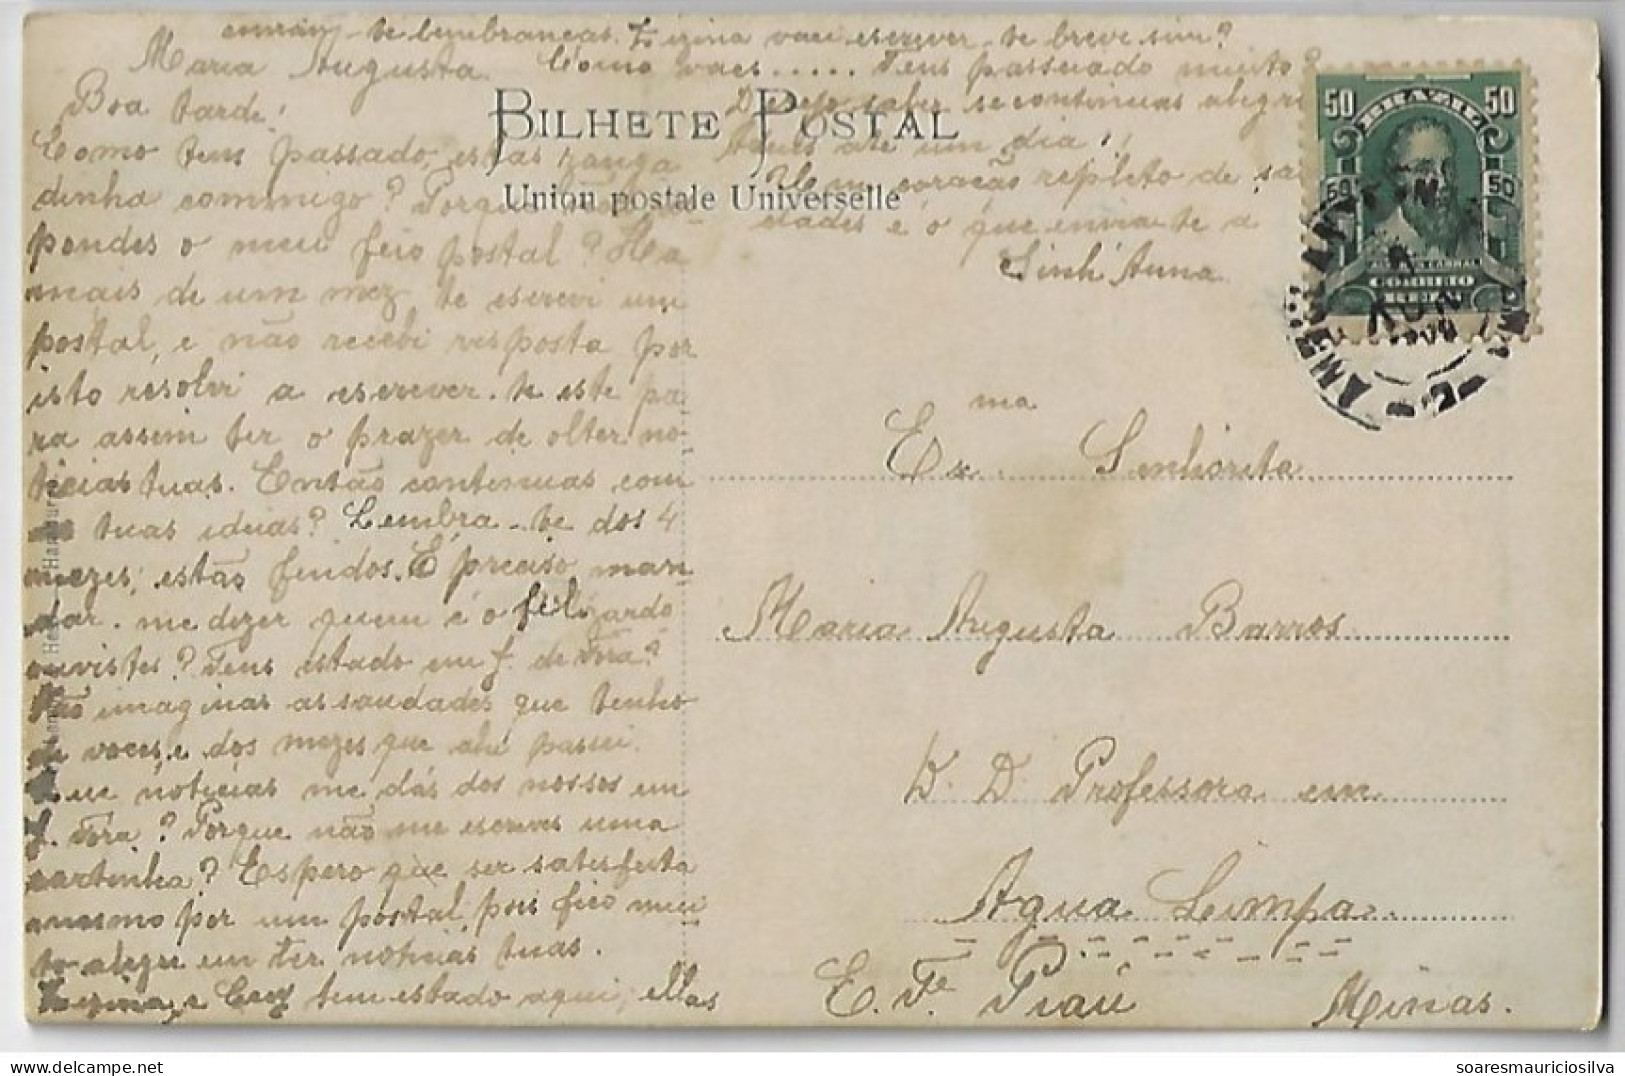 enviam-te lembranças. Lizina vae escrever-te breve sim?
Maria Augusta. Como vaes..... Tens passeado muito?
Boa tarde!
Desejo saber se continuas alegre
BILHETE POSTAL
Como tens passado, estás zanga
até um dia!!
dinha commigo? Porque
Um coração repleto de sau
Union postale Universelle
dades é o que envia-te a
Sinh'Anna
pondes o meu feio postal? Ha
mais de um mez te escrevi um
postal, e não recebi resposta por
isto resolvi a escrever-te este pa
ra assim ter o prazer de obter no-
ticias tuas. Então continuas com
as tuas ideias? Lembra-te dos 4
mezes; estão findos. É preciso man
dar-me dizer quem é o felizardo
ouvistes? Tens estado em J. de Fora?
Não imaginas as saudades que tenho
de voces e dos mezes que ahi passei.
Que nóticias me dás dos nossos em
J. Fora? Porque não me escreves uma
cartinha? Espero que ser satisfeita
mesmo por um postal, pois fico mui
to alegre em ter noticias tuas.
Lizina e tem estado aqui, ellas
50 BRAZIL 50
50 50
CORREIO
Ex.ma Senhorita
Maria Augusta Barros
D. D. Professora em
Agua Limpa
E. Fe. Piáu Minas.
soaresmauriciosilva